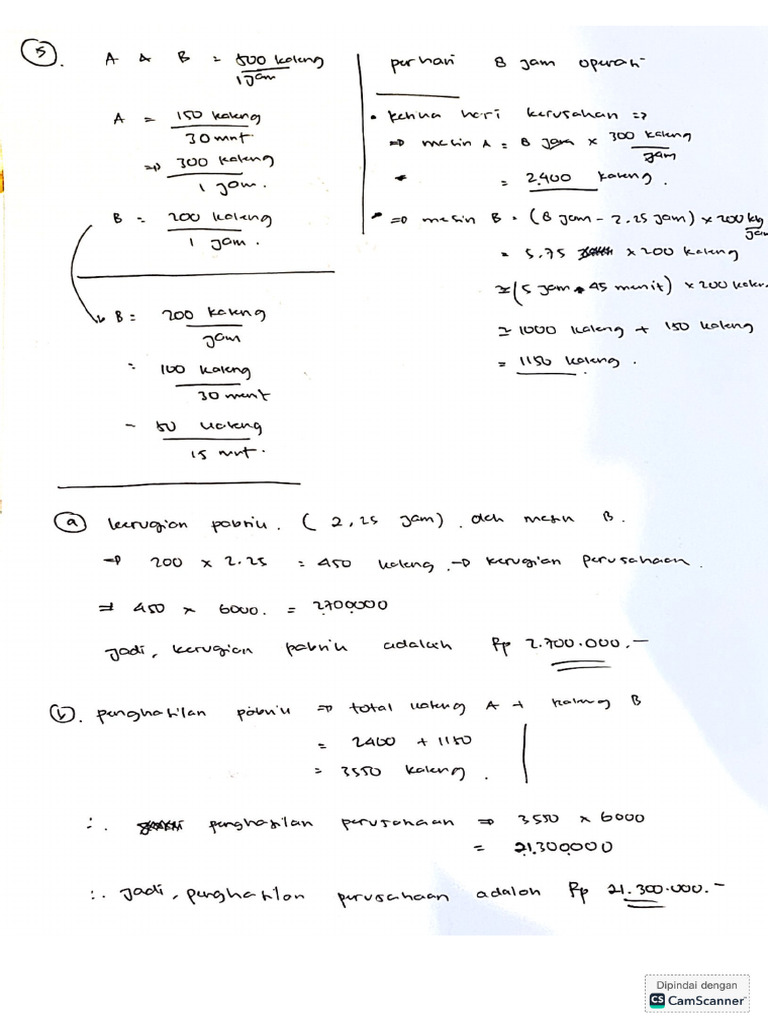 5.
A & B = 500 kaleng
1 jam
A = 150 kaleng
30 mnt.
=> 300 kaleng
1 jam.
B = 200 kaleng
1 jam.
B = 200 kaleng
jam
= 100 kaleng
30 menit
= 50 kaleng
15 mnt.
per hari 8 jam operasi
• ketika hari kerusakan =>
=> mesin A = 8 jam × 300 kaleng
jam
= 2.400 kaleng.
=> mesin B = (8 jam - 2.25 jam) × 200 klg
jam
= 5.75 × 200 kaleng
≃ (5 jam • 45 menit) × 200 kalen
≃ 1000 kaleng + 150 kaleng
= 1150 kaleng.
a kerugian pabrik. (2,25 jam). oleh mesin B.
→ 200 × 2.25 = 450 kaleng → kerugian perusahaan.
⇒ 450 × 6000. = 2.700.000
Jadi, kerugian pabrik adalah Rp 2.700.000.-
b. penghasilan pabrik => total kaleng A + kaleng B
= 2400 + 1150
= 3550 kaleng.
∴ penghasilan perusahaan => 3550 × 6000
= 21.300.000
∴ Jadi, penghasilan perusahaan adalah Rp 21.300.000.-
Dipindai dengan
CS CamScanner